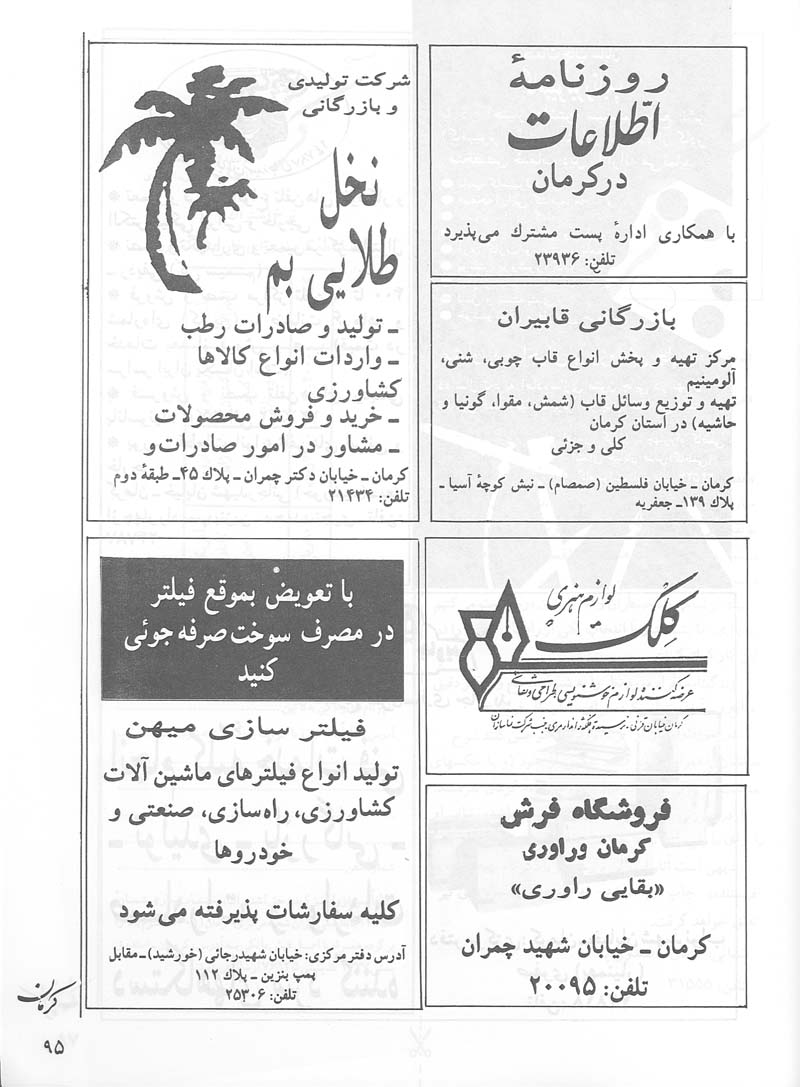 روزنامهٔ
اطّلاعات
در کرمان
با همکاری ادارهٔ پست مشترك می‌پذیرد
تلفن: ۲۳۹۳۶
بازرگانی قابیران
مرکز تهیه و پخش انواع قاب چوبی، شنی،
آلومینیم
تهیه و توزیع وسائل قاب (شمش، مقوا، گونیا و
حاشیه) در استان کرمان
کلی و جزئی
کرمان ـ خیابان فلسطین (صمصام) ـ نبش کوچهٔ آسیا ـ
پلاك ۱۳۹ـ جعفریه
لوازم هنری
کِلْك
عرضه کننده لوازم خوشنویسی طراحی و نقاشی
کرمان خیابان قرنی ـ نرسیده به چهارراه
فروشگاه فرش
کرمان وراوری
«بقایی راوری»
کرمان ـ خیابان شهید چمران
تلفن: ۲۰۰۹۵
شرکت تولیدی
و بازرگانی
نخل
طلایی بم
ـ تولید و صادرات رطب
ـ واردات انواع کالاها
کشاورزی
ـ خرید و فروش محصولات
ـ مشاور در امور صادرات و
کرمان ـ خیابان دکتر چمران ـ پلاك ۴۵ـ طبقهٔ دوم
تلفن: ۲۱۴۳۴
با تعویض بموقع فیلتر
در مصرف سوخت صرفه جوئی
کنید
فیلتر سازی میهن
تولید انواع فیلترهای ماشین آلات
کشاورزی، راه‌سازی، صنعتی و
خودروها
کلیه سفارشات پذیرفته می‌شود
آدرس دفتر مرکزی: خیابان شهیدرجانی (خورشید) ـ مقابل
پمپ بنزین ـ پلاك ۱۱۲
تلفن: ۲۵۳۰۶
کرمان
۹۵